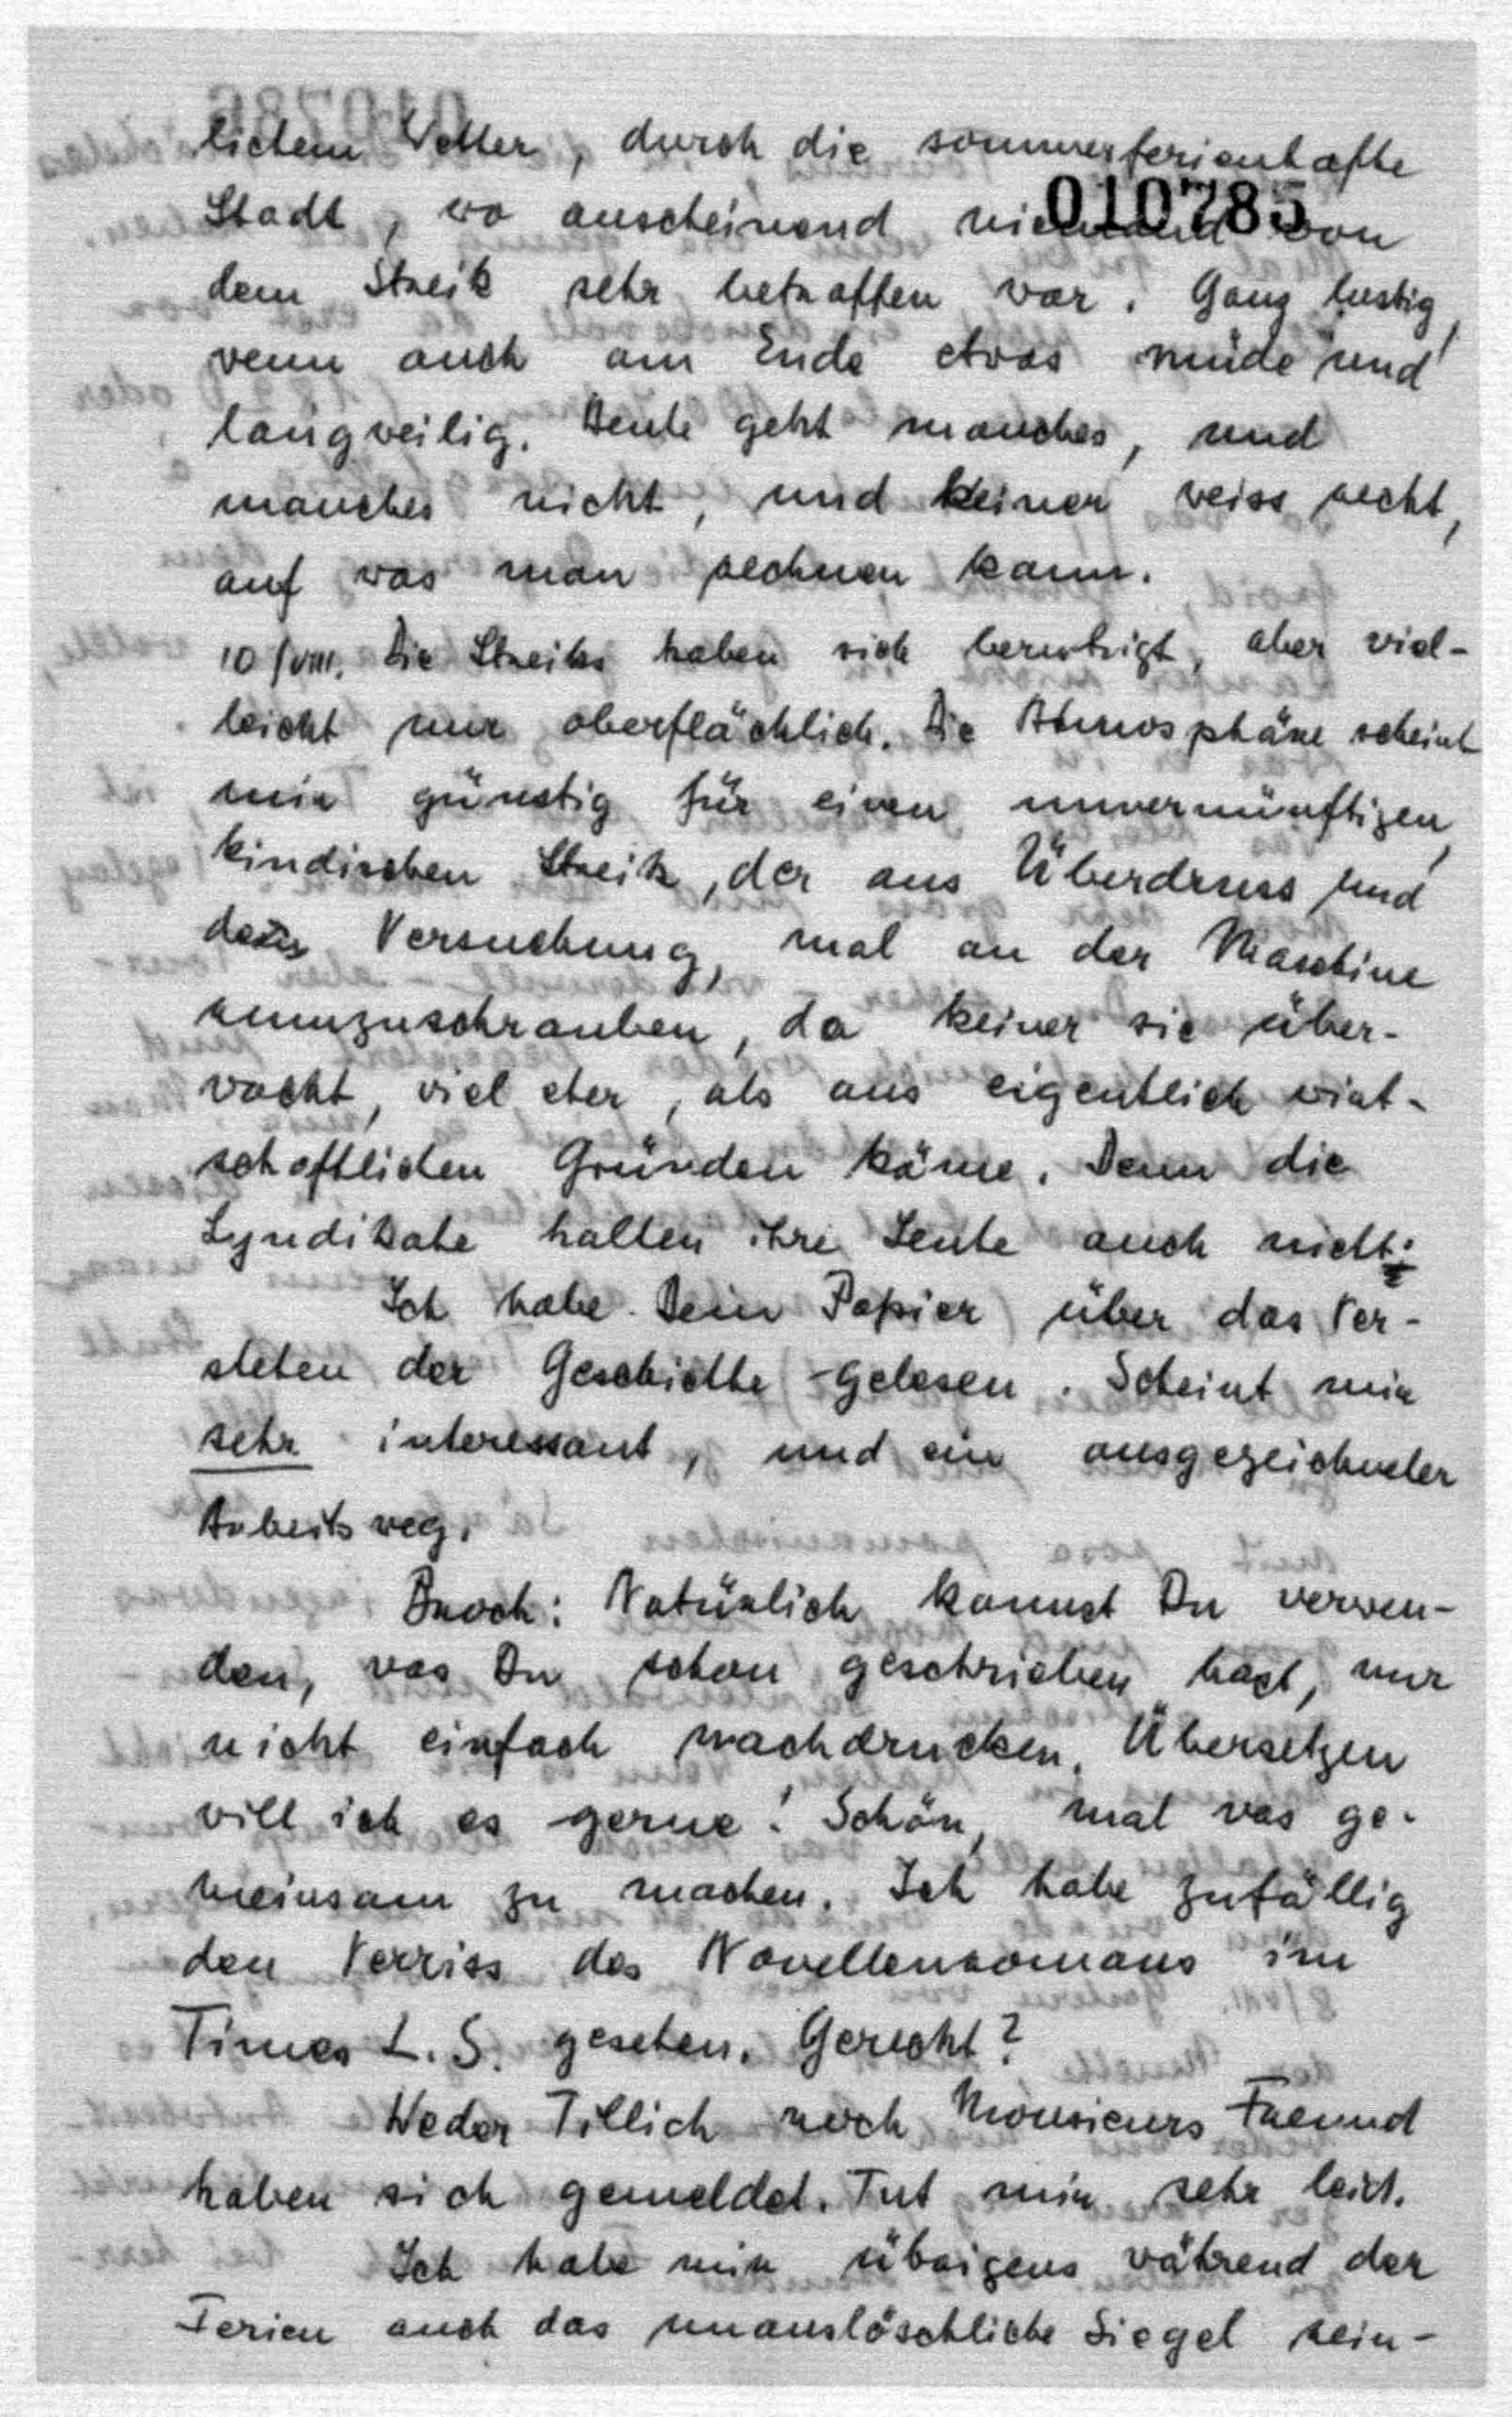 lichem Wetter, durch die sommerferienhafte
010785
Stadt, wo anscheinend niemand von
dem Streik sehr betroffen war. Ganz lustig,
wenn auch am Ende etwas müde und
langweilig. Heute geht manches, und
manches nicht, und keiner weiss recht,
auf was man rechnen kann.
10/VIII. Die Streiks haben sich beruhigt, aber viel-
leicht nur oberflächlich. Die Atmosphäre scheint
mir günstig für einen unvernünftigen,
kindischen Streik, der aus Überdruss und
der Versuchung, mal an der Maschine
rumzuschrauben, da keiner sie über-
wacht, viel eher, als aus eigentlich wirt-
schaftlichen Gründen käme. Denn die
Syndikate halten ihre Leute auch nicht.
Ich habe Dein Papier über das Ver-
stehen der Geschichte gelesen. Scheint mir
sehr interessant, und ein ausgezeichneter
Arbeitsweg.
Broch: Natürlich kannst Du verwen-
den, was Du schon geschrieben hast, nur
nicht einfach nachdrucken. Übersetzen
will ich es gerne! Schön, mal was ge-
meinsam zu machen. Ich habe zufällig
den Verriss des Novellenromans im
Times L. S. gesehen. Gerecht?
Weder Tillich noch Monsieurs Freund
haben sich gemeldet. Tut mir sehr leid.
Ich habe mir übrigens während der
Ferien auch das unauslöschliche Siegel rein-